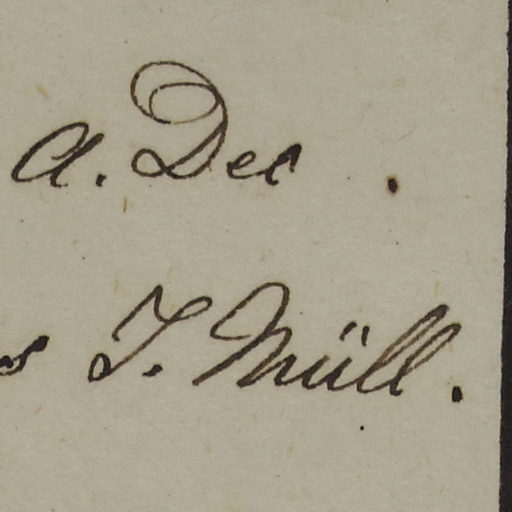 a. Dec .
s J. Müll.